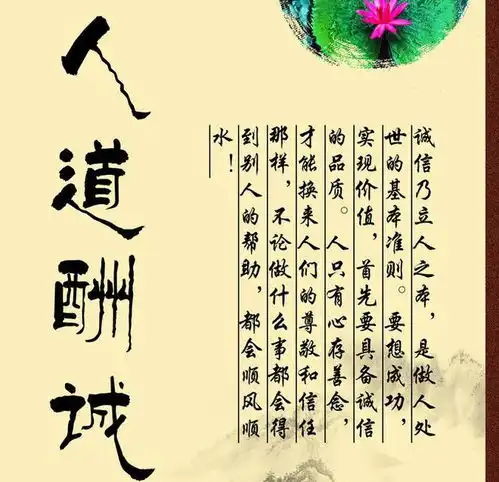 人道酬诚
诚信乃立人之本，是做人处
世的基本准则。要想成功，
实现价值，首先要具备诚信
的品质。人只有心存善念，
才能换来人们的尊敬和信任
那样，不论做什么事都会得
到别人的帮助，都会顺风顺
水！